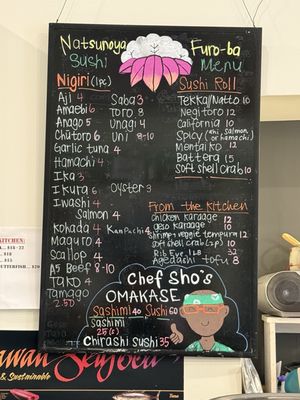 Natsunoya Furo-ba
Sushi Menu
Nigiri (1pc)
Aji 4 Saba 3
Amaebi 6 Toro 9
Anago 5 Unagi 4
Chūtoro 6 Uni 8-10
Garlic tuna 4
Hamachi 4
Ika 3
Ikura 6 Oyster 3
Iwashi 4
Salmon 4
Kohada 4 Kanpachi 4
Maguro 4
Scallop 4
A5 Beef 8-10
Tako 4
Tamago
2.50
Sushi Roll
Tekka/Natto 10
Negitoro 12
California 10
Spicy (ahi, salmon
or hamachi)
Mentaiko 12
Battera 15
Soft shell Crab 10
From the Kitchen
chicken karaage 12
geso karaage 10
shrimp + veggie tempura 12
soft shell crab (2p) 10
Rib Eye 1LB 32
Agedashi tofu 8
Chef Sho's
OMAKASE
Sashimi 40 Sushi 60
Sashimi
25 (s)
Chirashi Sushi 35
KITCHEN
& Sustainable